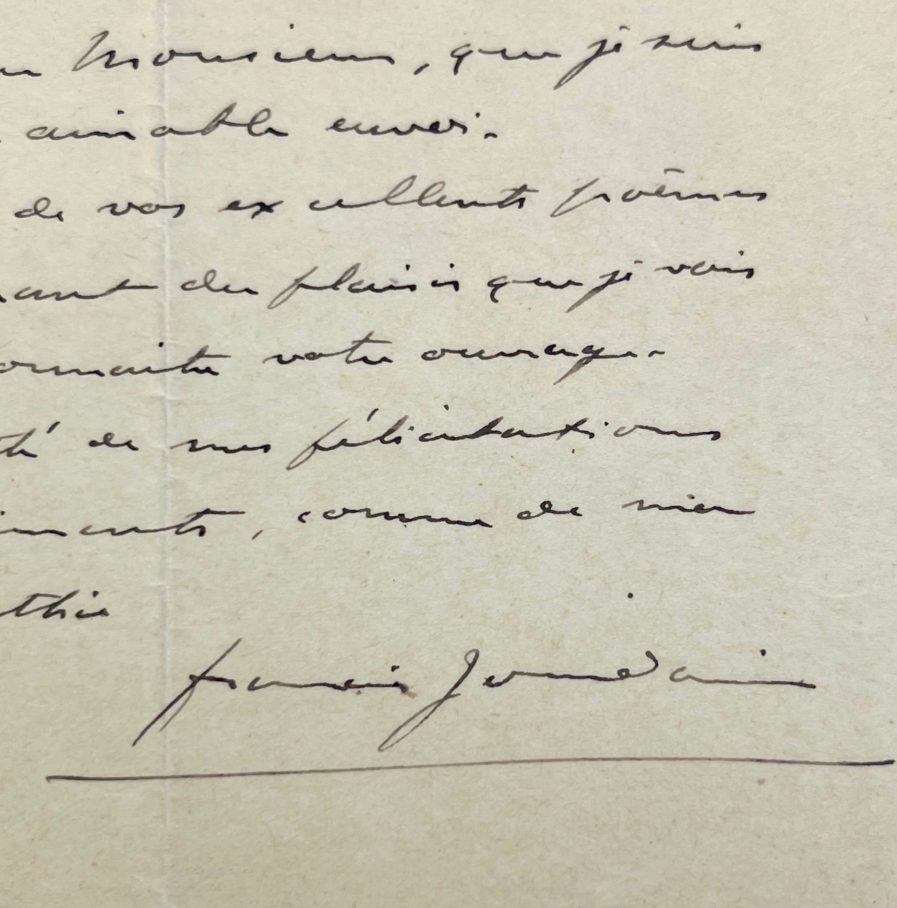 Monsieur, que je suis
aimable envoi.
de vos excellents poèmes
du plaisir que je vais
connaître votre ouvrage.
de mes félicitations
, comme de ma
thie
francis Jourdain